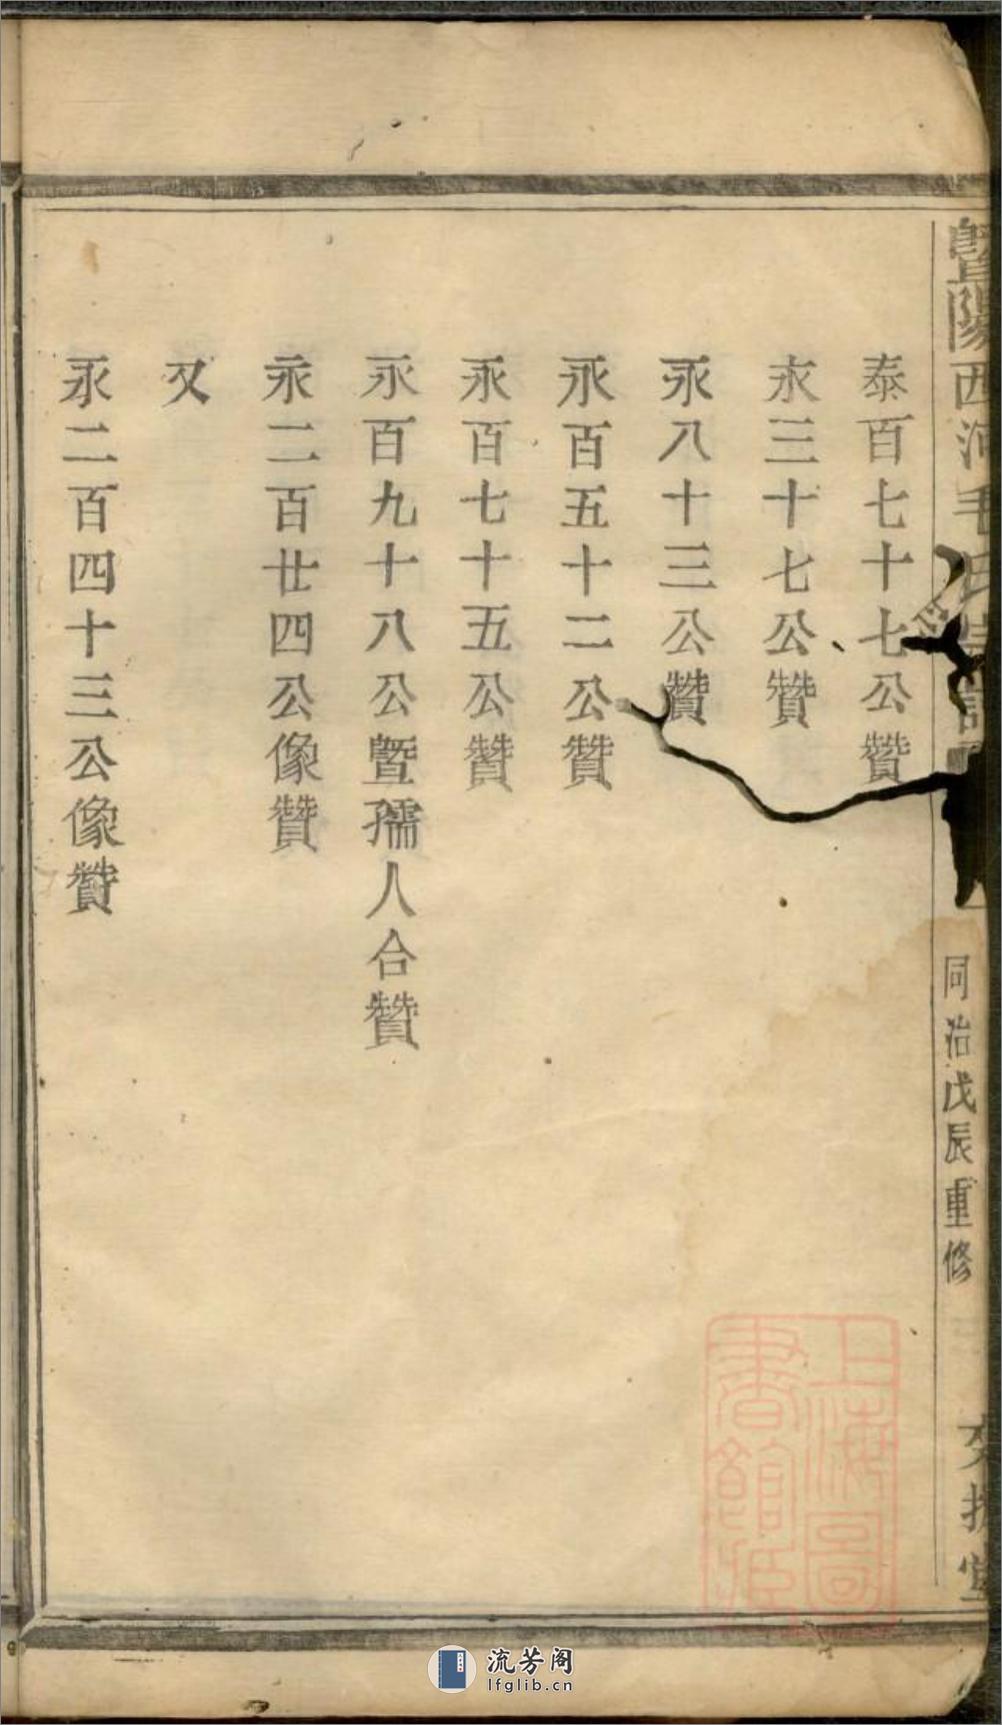 暨陽西河毛氏宗譜
同治戊辰重修
泰百七十七公贊
永三十七公贊
永八十三公贊
永百五十二公贊
永百七十五公贊
永百九十八公暨孺人合贊
永二百廿四公像贊
又
永二百四十三公像贊
上海圖書館藏
流芳阁
lfglib.cn